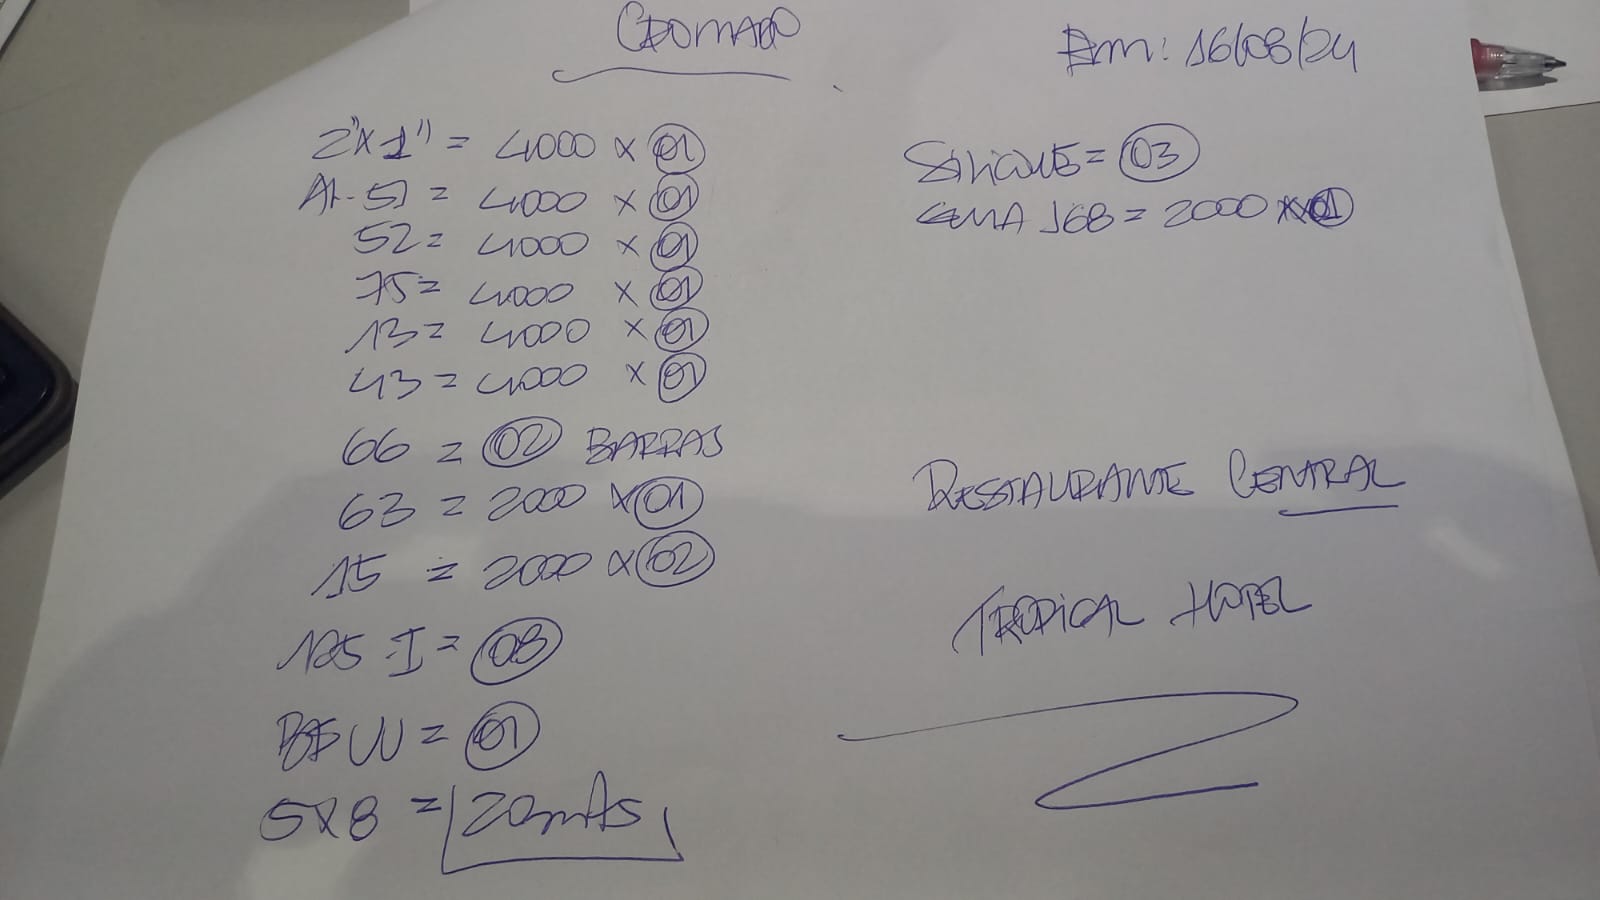 CROMADO
Em: 16/08/24
2"x1" = 4000 x 01
Al-51 = 4000 x 01
52 = 4000 x 01
75 = 4000 x 01
13 = 4000 x 01
43 = 4000 x 01
66 = 02 BARRAS
63 = 2000 x 01
15 = 2000 x 02
125-I = 08
= 01
5x8 = 20mts
SILICONE = 03
168 = 2000 x 01
RESTAURANTE CENTRAL
TROPICAL HOTEL